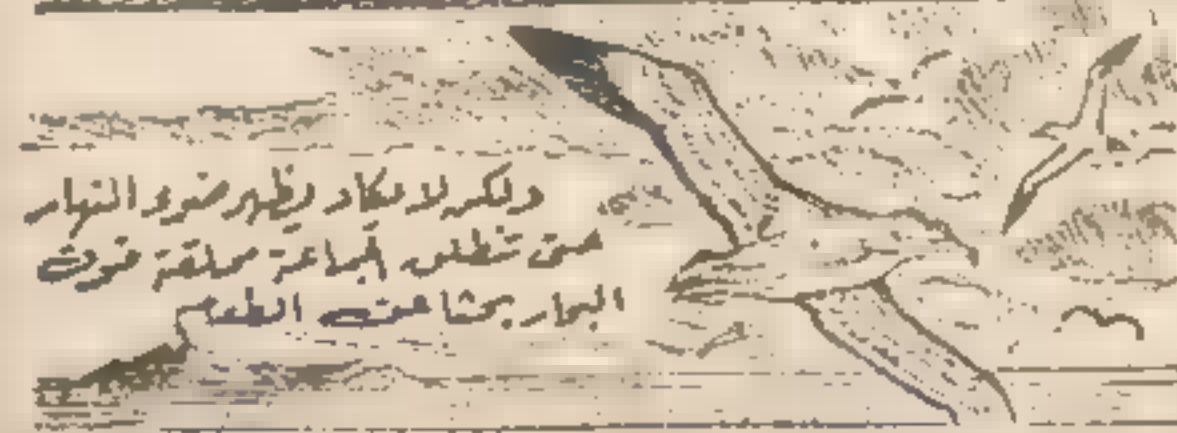 ولكن لا يكاد يظهر ضوء النهار
حتى تنطلق الجماعة محلقة فوق
البحار بحثا عن الطعام